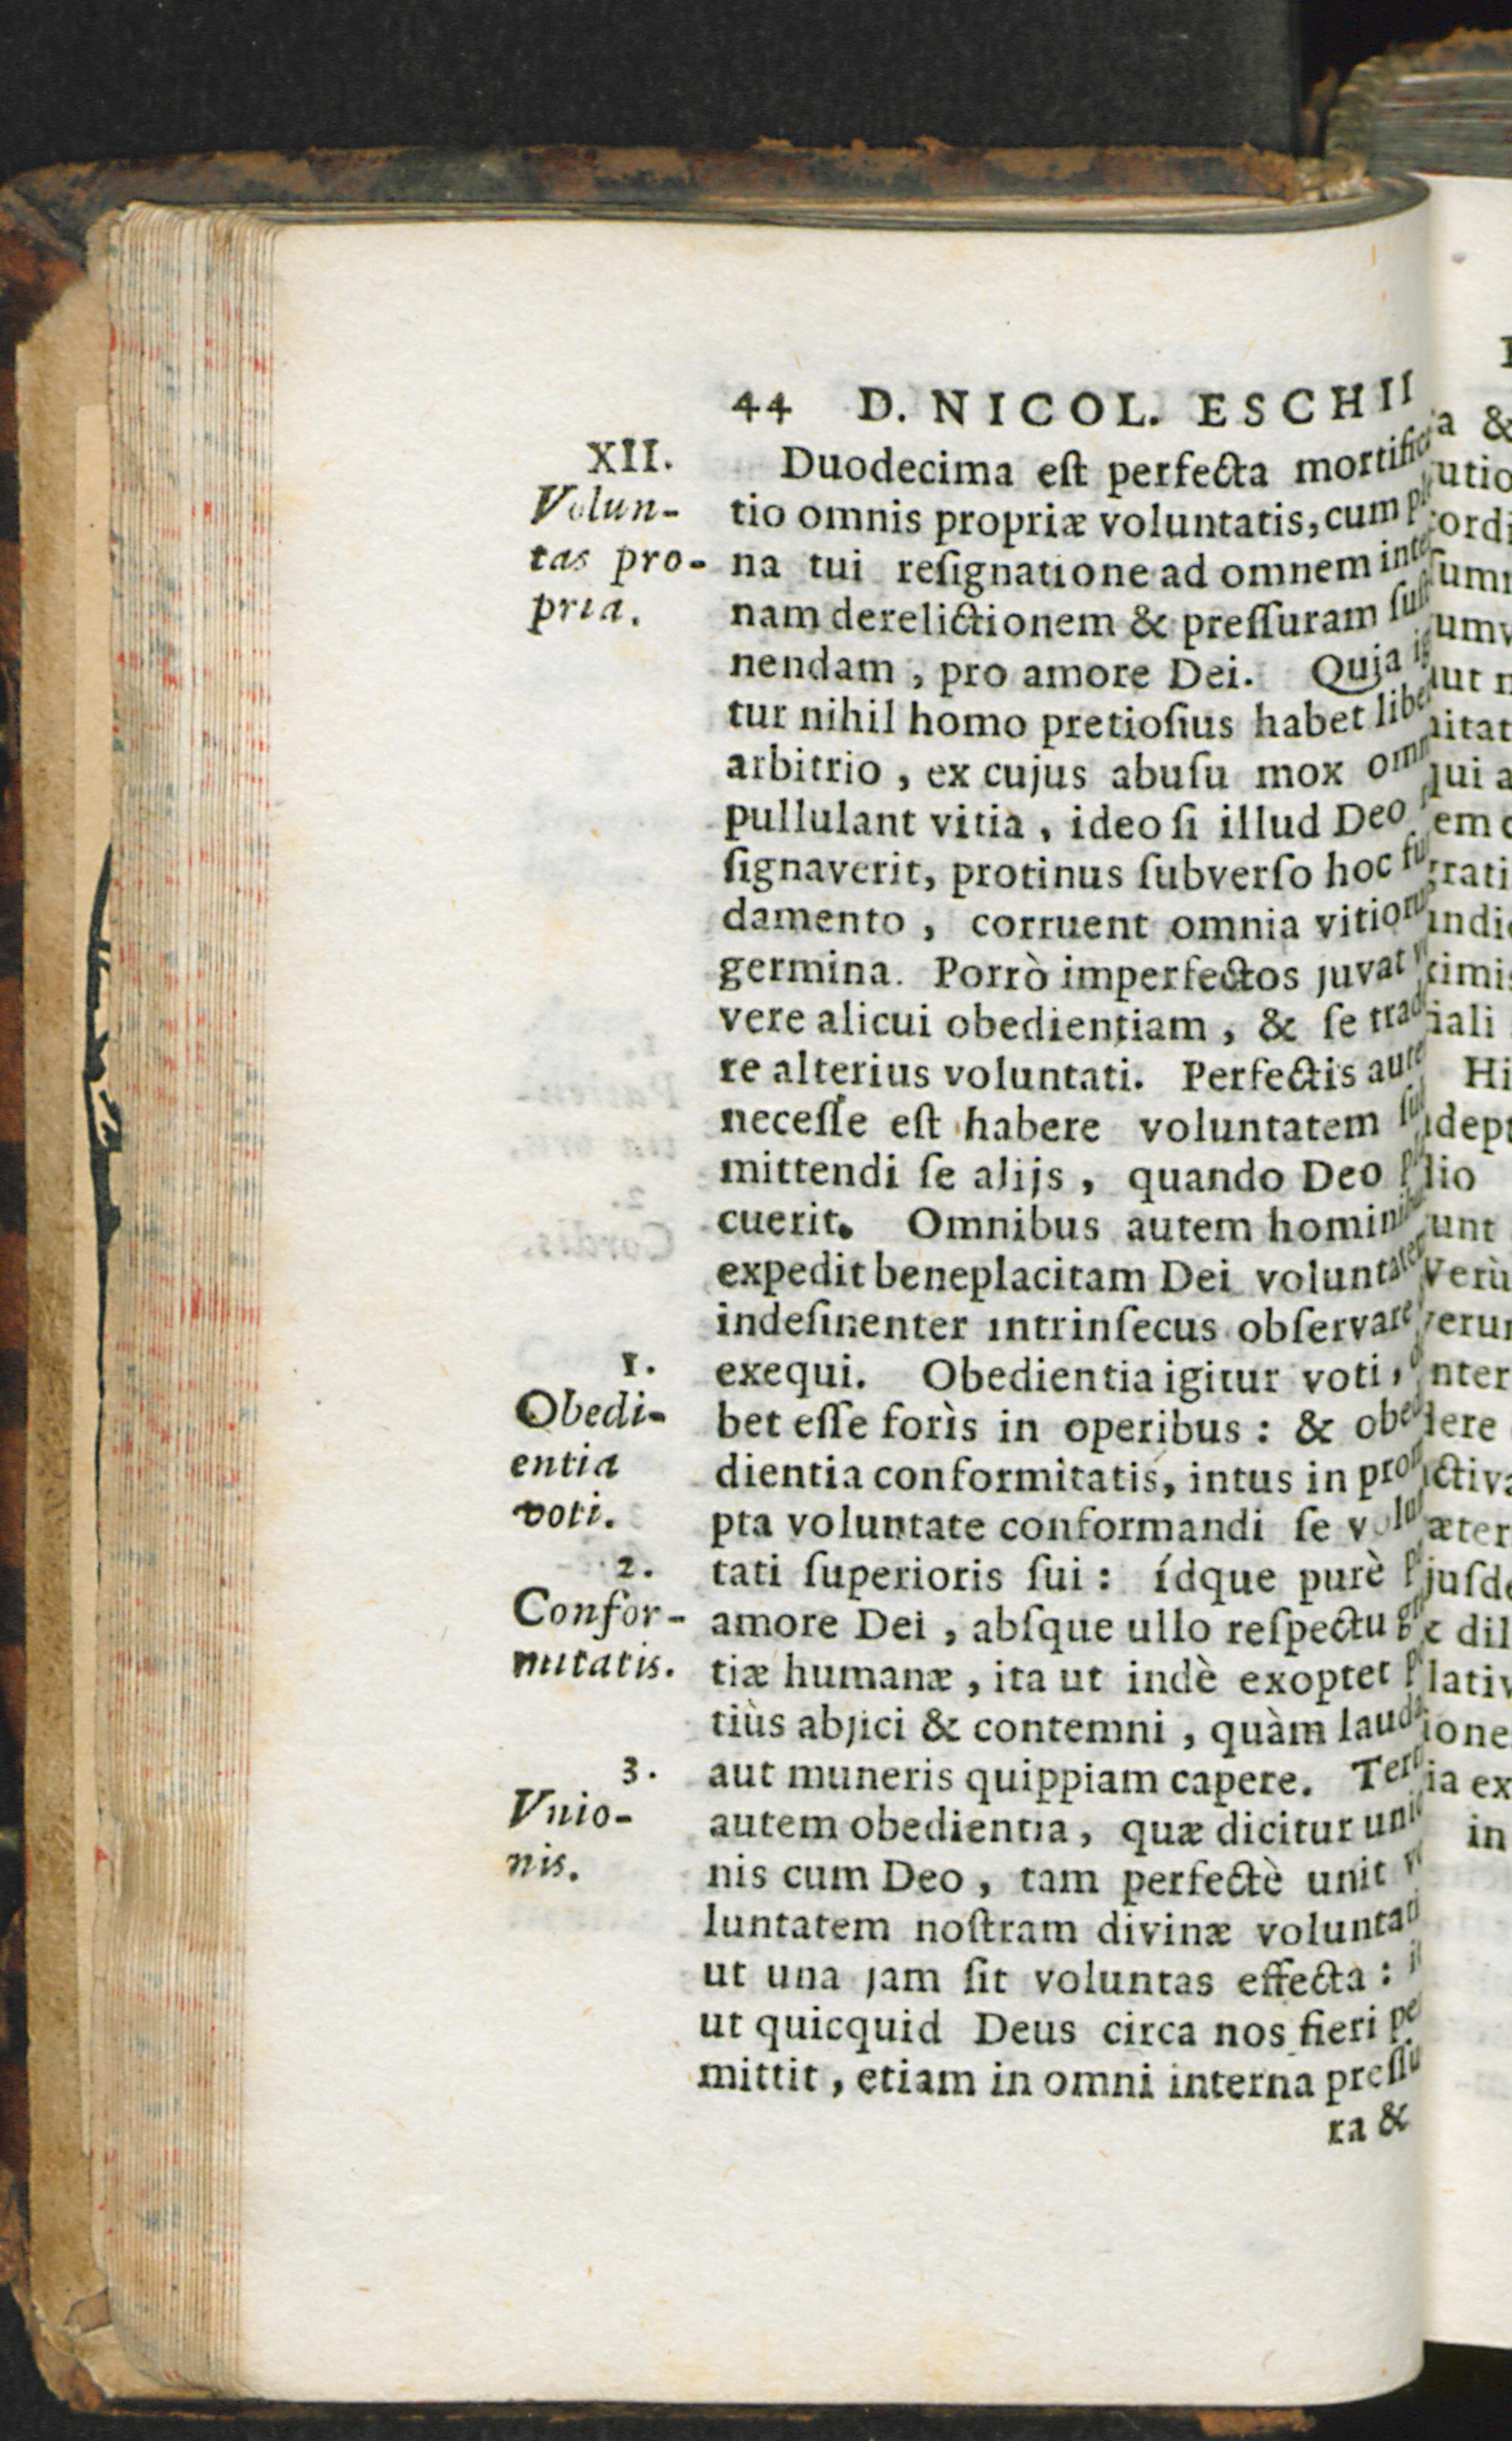 44 D. NICOL. ESCHII
XII.
Volun-
tas pro-
pria.
Duodecima eſt perfecta mortifica
tio omnis propriæ voluntatis, cum
na tui reſignatione ad omnem inter
nam derelictionem & preſſuram ſuſti
nendam, pro amore Dei. Quia
tur nihil homo pretioſius habet libe
arbitrio, ex cujus abuſu mox omn
pullulant vitia, ideo ſi illud Deo
ſignaverit, protinus ſubverſo hoc fu
damento, corruent omnia vitioru
germina. Porrò imperfectos juvat
vere alicui obedientiam, & ſe trade
re alterius voluntati. Perfectis aute
neceſſe eſt habere voluntatem ſub
mittendi ſe alijs, quando Deo
cuerit. Omnibus autem hominibus
expedit beneplacitam Dei voluntatem
indeſinenter intrinſecus obſervare
exequi. Obedientia igitur voti,
bet eſſe forìs in operibus: & obe
dientia conformitatis, intus in prom
pta voluntate conformandi ſe volun
tati ſuperioris ſui: ídque purè
amore Dei, abſque ullo reſpectu gra
tiæ humanæ, ita ut indè exoptet
tiùs abjici & contemni, quàm lauda
aut muneris quippiam capere. Terti
autem obedientia, quæ dicitur unio
nis cum Deo, tam perfectè unit vo
luntatem noſtram divinæ voluntati
ut una jam ſit voluntas effecta:
ut quicquid Deus circa nos fieri per
mittit, etiam in omni interna preſſu
ra &
1.
Obedi-
entia
voti.
2.
Confor-
mitatis.
3.
Vnio-
nis.